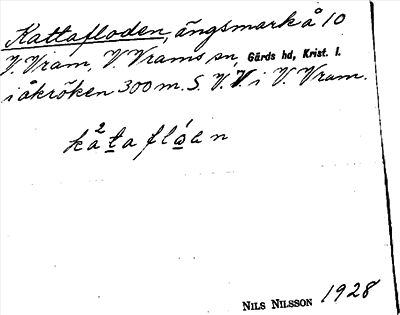 Kattafloden, ängsmark å 10
V. Vram, V. Vrams sn, Gärds hd, Krist. l.
i åkröken 300 m. S. V. V. i V. Vram.
ka²ta flóan
NILS NILSSON 1928